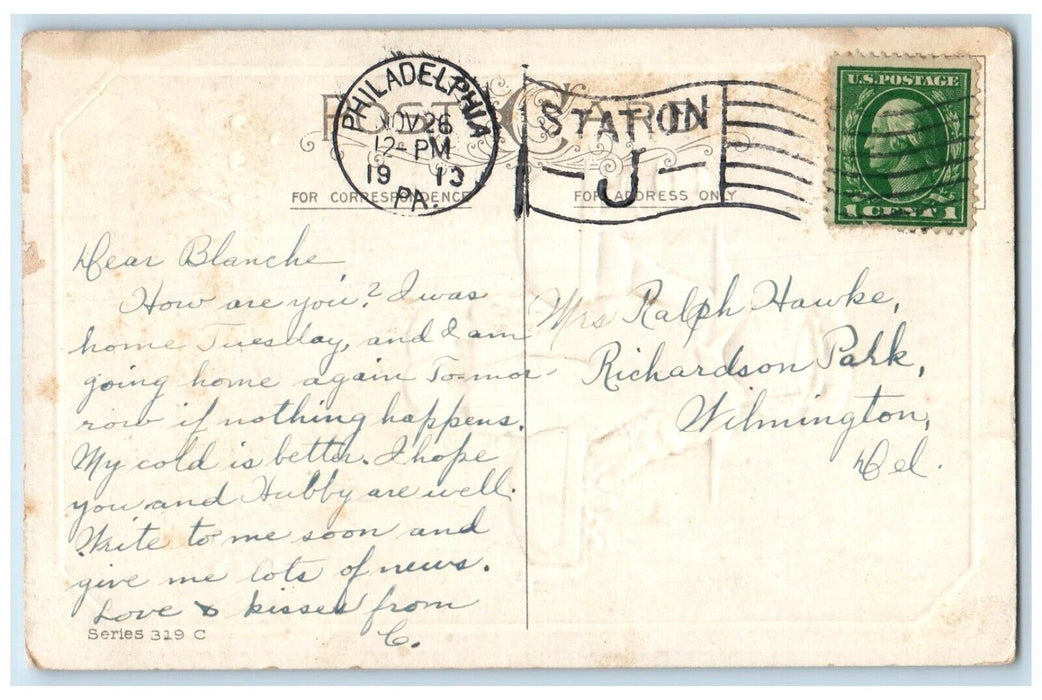 POST CARD
PHILADELPHIA
NOV 26
12-PM
1913
PA.
STATION
J
U.S. POSTAGE
1 CENT 1
FOR CORRESPONDENCE
FOR ADDRESS ONLY
Dear Blanche,
How are you? I was
home Tuesday, and I am
going home again To-mor
row if nothing happens.
My cold is better. I hope
you and Hubby are well.
Write to me soon and
give me lots of news.
Love & kisses from
C.
Series 319 C
Mrs Ralph Hawke,
Richardson Park,
Wilmington,
Del.